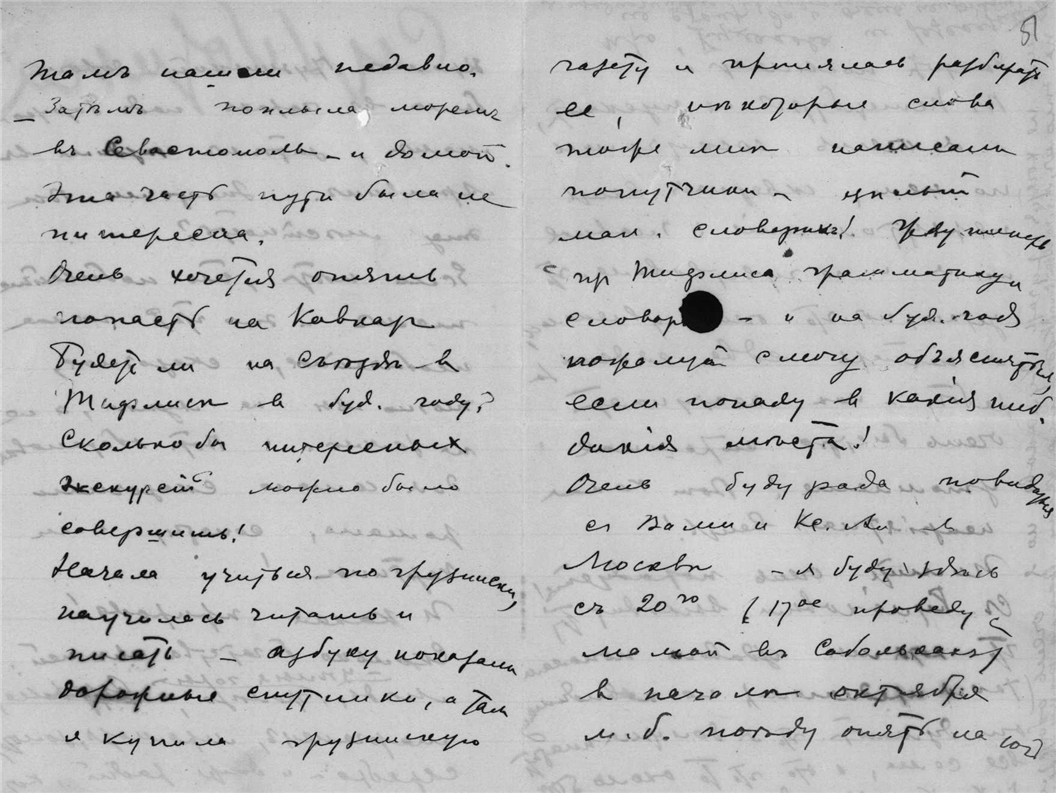 51
тамъ нашли недавно.
Затѣмъ поплыла моремъ
въ Севастополь – и домой.
Эта часть пути была не
интересна.
Очень хочется опять
попасть на Кавказ
Будет ли на съѣздъ в
Тифлисѣ в буд. году?
Сколько бы интересных
экскурсiй можно было
совершить!
Начала учиться по грузински,
научилась читать и
писать – азбуку показали
дорожные спутники, а там
я купила грузинскую
газету и принялась разбирать
ее, нѣкоторые слова
тоже мнѣ написали
попутчики – цѣлый
мал. словарикъ!
пр Тифлиса грамматику и
словарь – и на буд. годъ
пожалуй смогу объясняться,
если попаду в какiя ниб.
дикiя мѣста!
Очень буду рада повидаться
съ Вами и Кс. Ан. в
Москвѣ – я буду здѣсь
съ 20го (17ое проведу с
мамой въ
в началѣ октября
м. б. поѣду опять на юг)